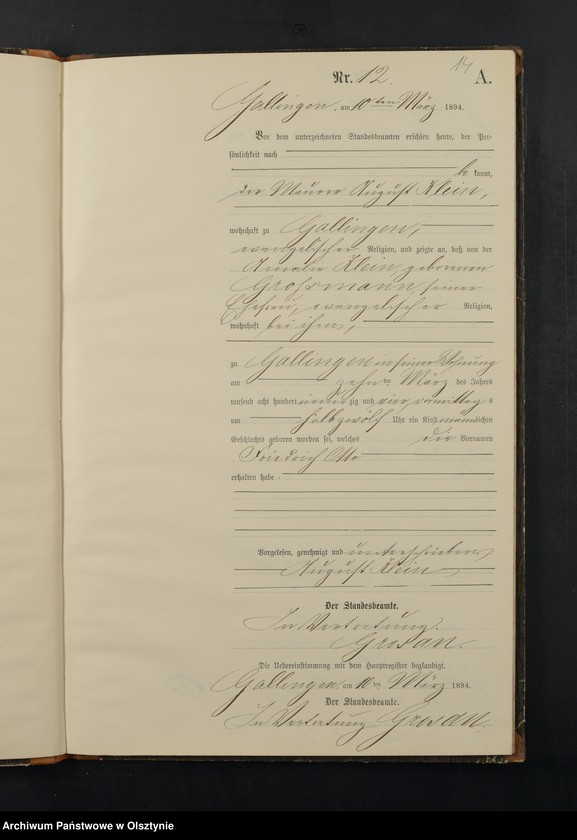 14
Nr. 12. A.
Gallingen, am 10ten März 1894.
Vor dem unterzeichneten Standesbeamten erschien heute, der Per-
sönlichkeit nach
be kannt,
der Maurer August Klein,
wohnhaft zu Gallingen,
evangelischer Religion, und zeigte an, daß von der
Amalie Klein, geborenen
Großmann, seiner
Ehefrau, evangelischer Religion,
wohnhaft bei ihm,
zu Gallingen in seiner Wohnung
am zehnten März des Jahres
tausend acht hundert neunzig und vier, vormittags
um halbzwölf Uhr ein Kind männlichen
Geschlechts geboren worden sei, welches die Vornamen
Friedrich Otto
erhalten habe.
Vorgelesen, genehmigt und unterschrieben,
August Klein
Der Standesbeamte.
In Vertretung.
Die Uebereinstimmung mit dem Hauptregister beglaubigt.
Gallingen, am 10ten März 1894.
Der Standesbeamte.
In Vertretung
Archiwum Państwowe w Olsztynie